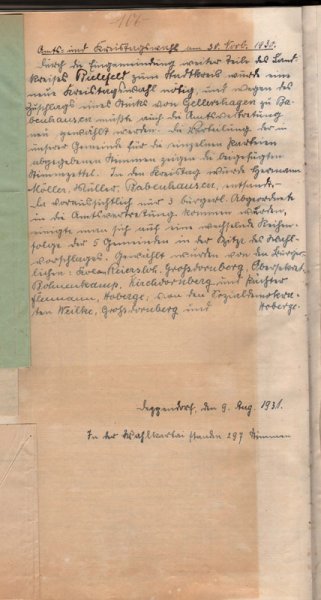 166
Amts- und Kreistagswahl am 30. Novb. 1930.
Durch die Eingemeindung weiter Teile des Land-
kreises Bielefeld zum Stadtkreis wurde eine
neue Kreistagswahl nötig, und wegen des
Zuschlags eines Stücks von Gellershagen zu Ba-
benhausen mußte auch die Amtsvertretung
neu gewählt werden. Die Verteilung der in
unserer Gemeinde für die einzelnen Parteien
abgegebenen Stimmen zeigen die beigefügten
Stimmzettel. In den Kreistag wurde Hermann
Möller, Müller, Babenhausen, entsandt.
Da voraussichtlich nur 3 bürgerl. Abgeordnete
in die Amtsvertretung kommen würden,
einigte man sich auf eine wechselnde Reihen-
folge der 5 Gemeinden in der Spitze des Wahl-
vorschlages. Gewählt wurden von den Bürger-
lichen: Großdornberg,
Bohnenkamp, Kirchdornberg und Pächter
Hoberge, von den Sozialdemokra-
ten Weilke, Großdornberg und
Hoberge.
Deppendorf, den 9. Aug. 1931.
In der Wahlkartei standen 297 Stimmen